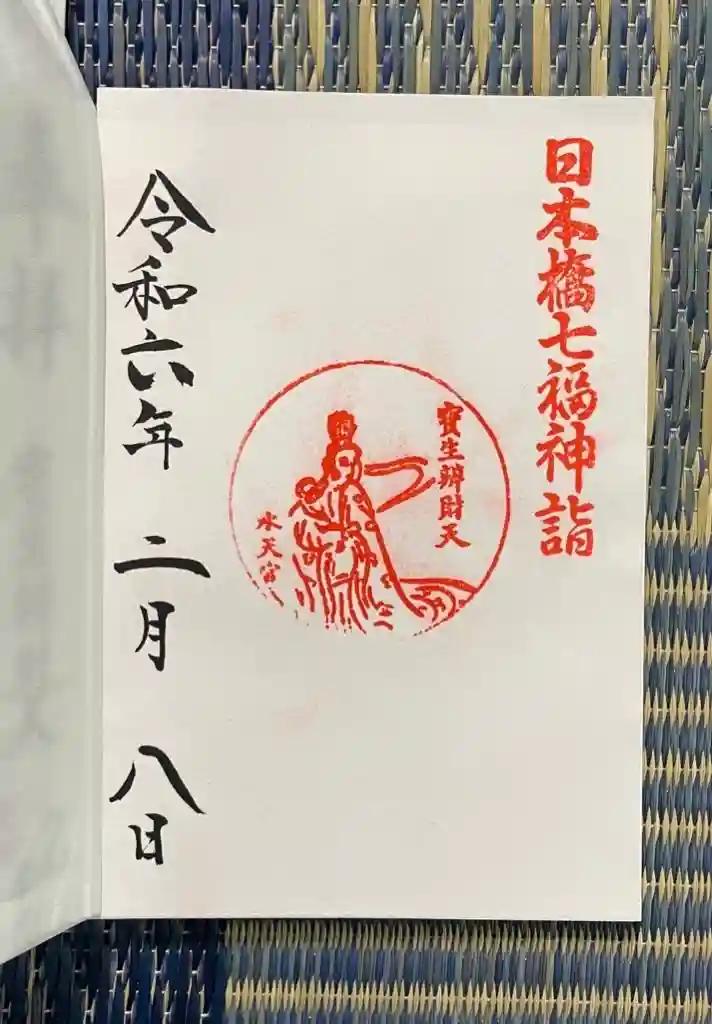 日本橋七福神詣
寶生辨財天
水天宮
令和六年 二月 八日